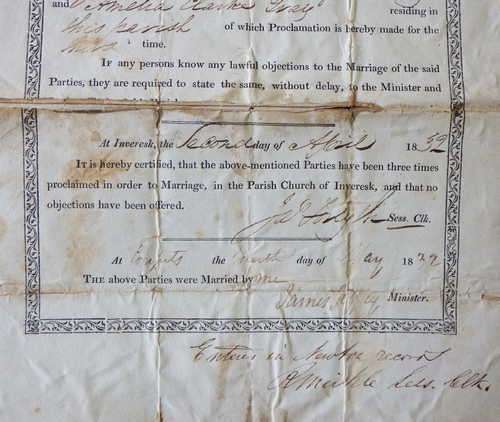 and Amelia Clarke Gray residing in
this parish of which Proclamation is hereby made for the
time.
IF any persons know any lawful objections to the Marriage of the said
Parties, they are required to state the same, without delay, to the Minister and
At Inveresk, the Second day of April 1832
IT is hereby certified, that the above-mentioned Parties have been three times
proclaimed in order to Marriage, in the Parish Church of Inveresk, and that no
objections have been offered.
Sess. Clk.
At the day of 18
THE above Parties were Married by me
James Minister.
Entered in Newton records
Sess. Clk.